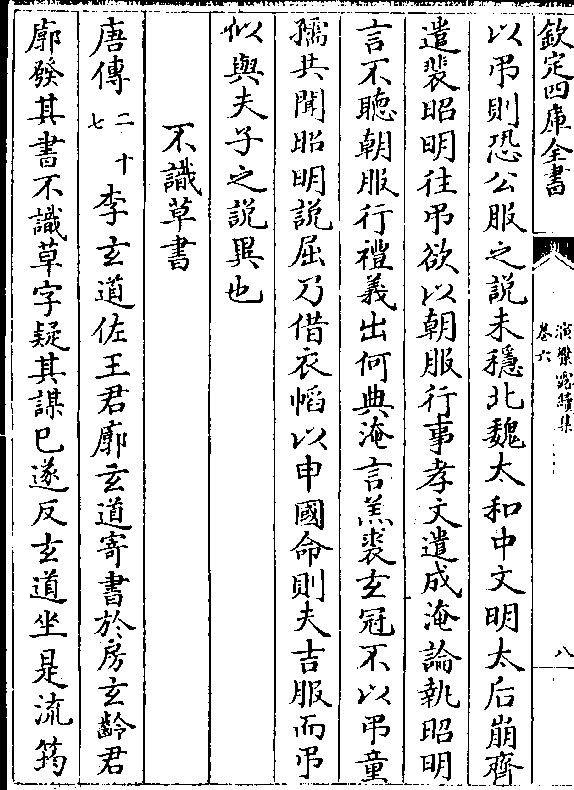 欽定四庫全書
演繁露續集
卷六
八
以弔則恐公服之説未穩北魏太和中文明太后崩齊
遣裴昭明往弔欲以朝服行事孝文遣成淹論執昭明
言不聽朝服行禮義出何典淹言羔裘玄冠不以弔童
孺共聞昭明説屈乃借衣幍以申國命則夫吉服而弔
似與夫子之説異也
不識草書
唐傳二十七李玄道佐王君廓玄道寄書於房玄齡君
廓發其書不識草字疑其謀已遂反玄道坐是流筠